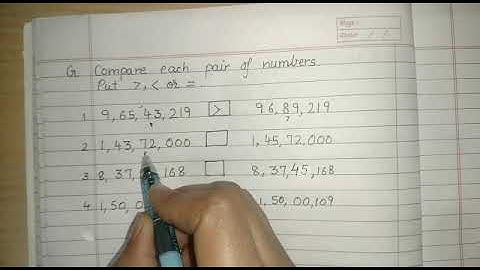 Page:
Date: / /
G Compare each pair of numbers.
Put >, < or =.
1 9,65,43,219 > 96,89,219
2 1,43,72,000 1,45,72,000
3 8,37, 168 8,37,45,168
4 1,50,0 1,50,00,109